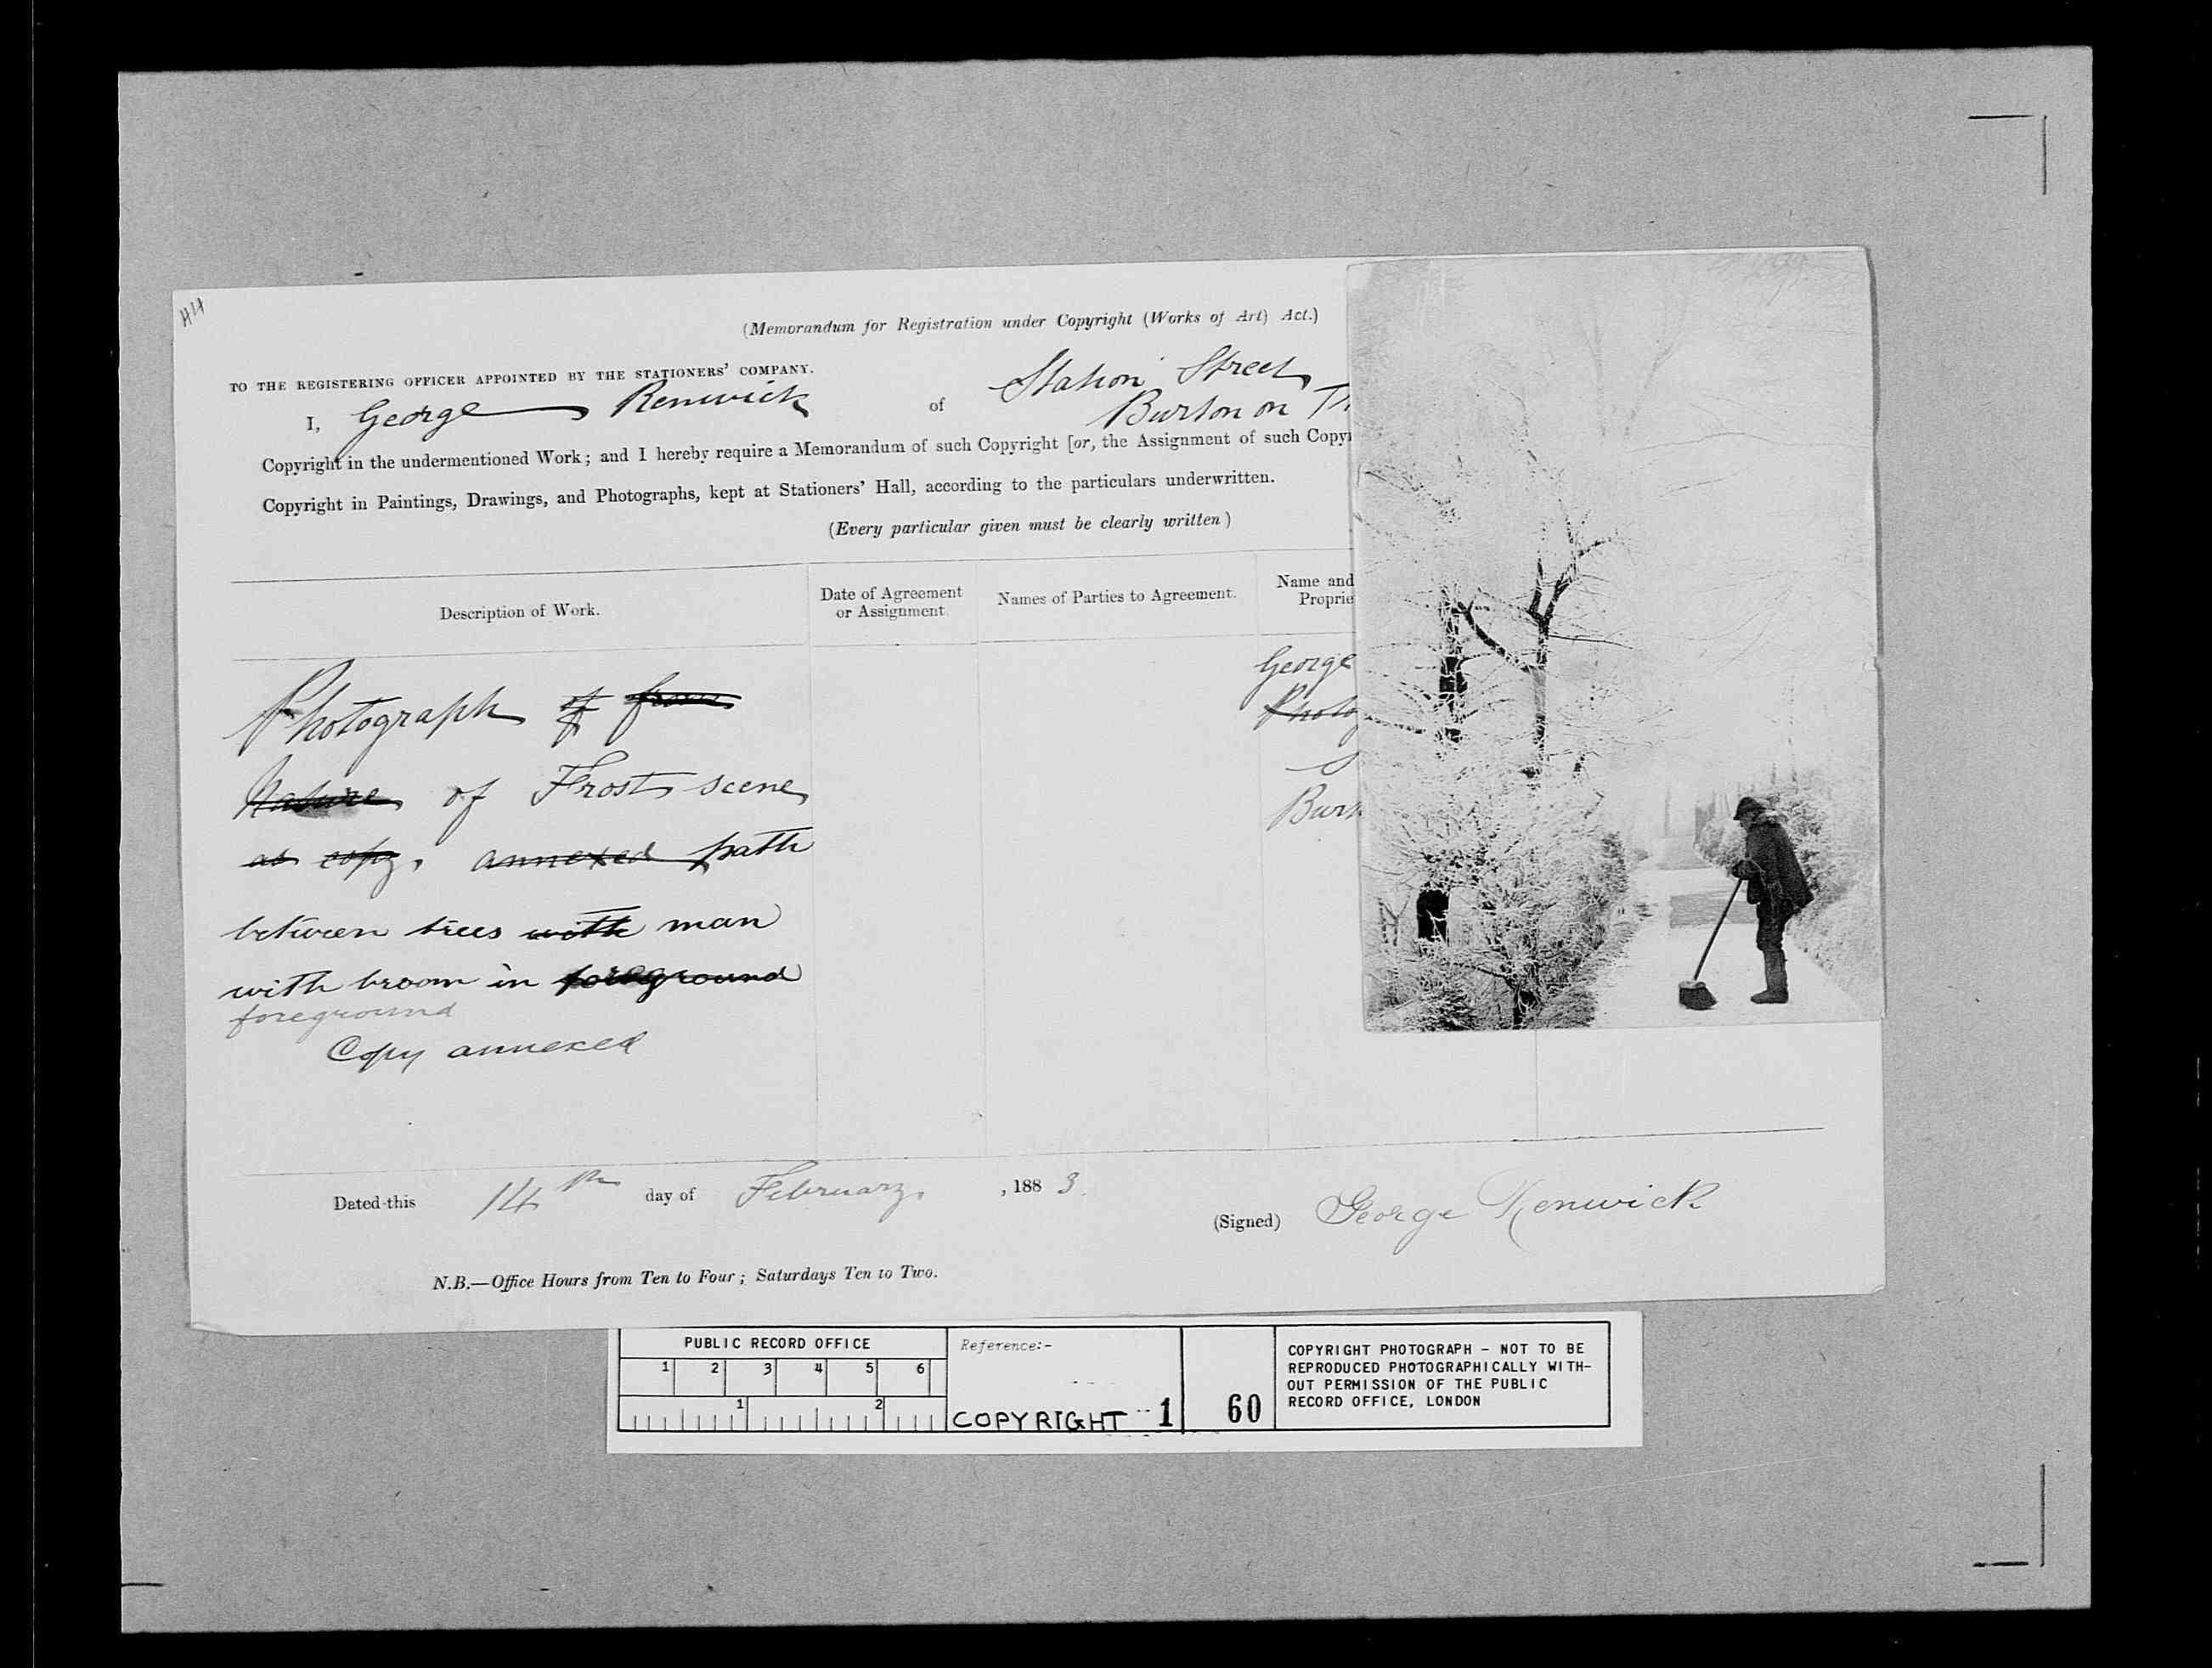 44
(Memorandum for Registration under Copyright (Works of Art) Act.)
TO THE REGISTERING OFFICER APPOINTED BY THE STATIONERS' COMPANY.
I, George Renwick of Station Street
Burton on
Copyright in the undermentioned Work; and I hereby require a Memorandum of such Copyright [or, the Assignment of such Copy
Copyright in Paintings, Drawings, and Photographs, kept at Stationers' Hall, according to the particulars underwritten.
(Every particular given must be clearly written)
Description of Work.
Date of Agreement
or Assignment.
Names of Parties to Agreement.
Name and
Proprie
Photograph of from
Nature of Frost scene
as copy, annexed path
between trees with man
with broom in foreground
foreground
Copy annexed
George
Photog
Burt
Dated this 14th day of February, 1883.
(Signed) George Renwick
N.B.—Office Hours from Ten to Four; Saturdays Ten to Two.
PUBLIC RECORD OFFICE
1 2 3 4 5 6
1 2
Reference:-
COPYRIGHT 1
60
COPYRIGHT PHOTOGRAPH - NOT TO BE
REPRODUCED PHOTOGRAPHICALLY WITH-
OUT PERMISSION OF THE PUBLIC
RECORD OFFICE, LONDON